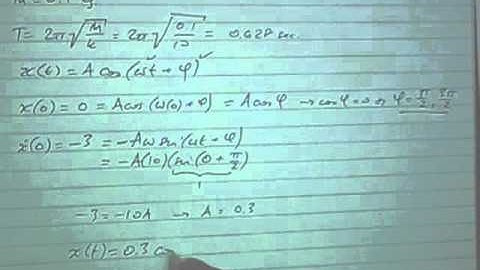 T = 2π√(M/k) = 2π√(0.1/10) = 0.628 sec.
x(t) = A cos(ωt + φ)
x(0) = 0 = A cos(ω(0) + φ) = A cos φ → cos φ = 0 or φ = π/2, 3π/2
ẋ(0) = -3 = -Aω sin(ωt + φ)
= -A(10)(sin(0 + π/2)
1
-3 = -10A → A = 0.3
x(t) = 0.3 co